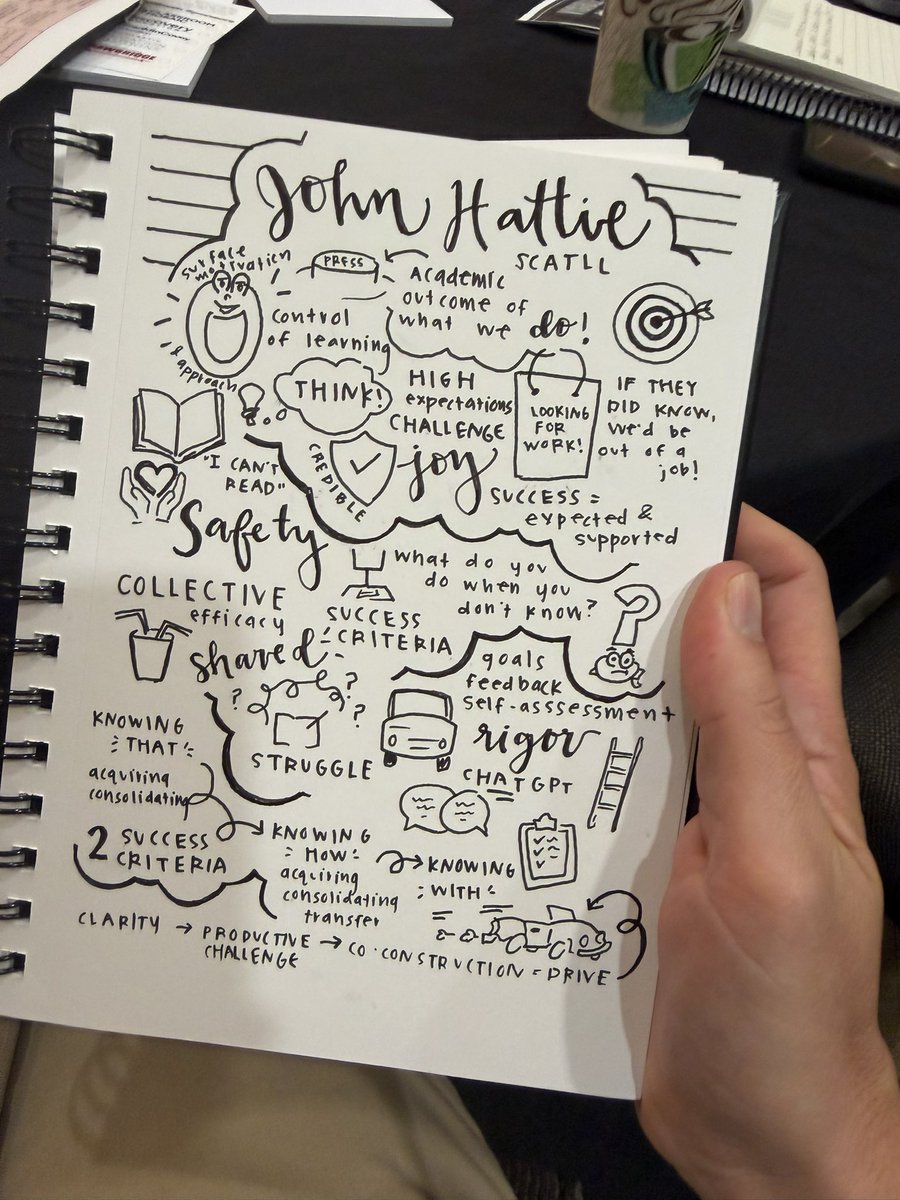 John Hattie
SCATLL
surface
motivation
& approach
PRESS
Academic
outcome of
what we do!
control
of learning
THINK!
HIGH
expectations
CHALLENGE
LOOKING
FOR
WORK!
IF THEY
DID KNOW,
we'd be
out of a
job!
"I CAN'T
READ"
CREDIBLE
joy
SUCCESS =
expected &
supported
Safety
what do you
do when you
don't know?
COLLECTIVE
efficacy
SUCCESS
CRITERIA
shared
goals
feedback
self-asssessment
? ? ?
STRUGGLE
rigor
CHATGPT
KNOWING
THAT
acquiring
consolidating
2 SUCCESS
CRITERIA
KNOWING
HOW
acquiring
consolidating
transfer
KNOWING
WITH
CLARITY → PRODUCTIVE
CHALLENGE → CO-CONSTRUCTION = DRIVE